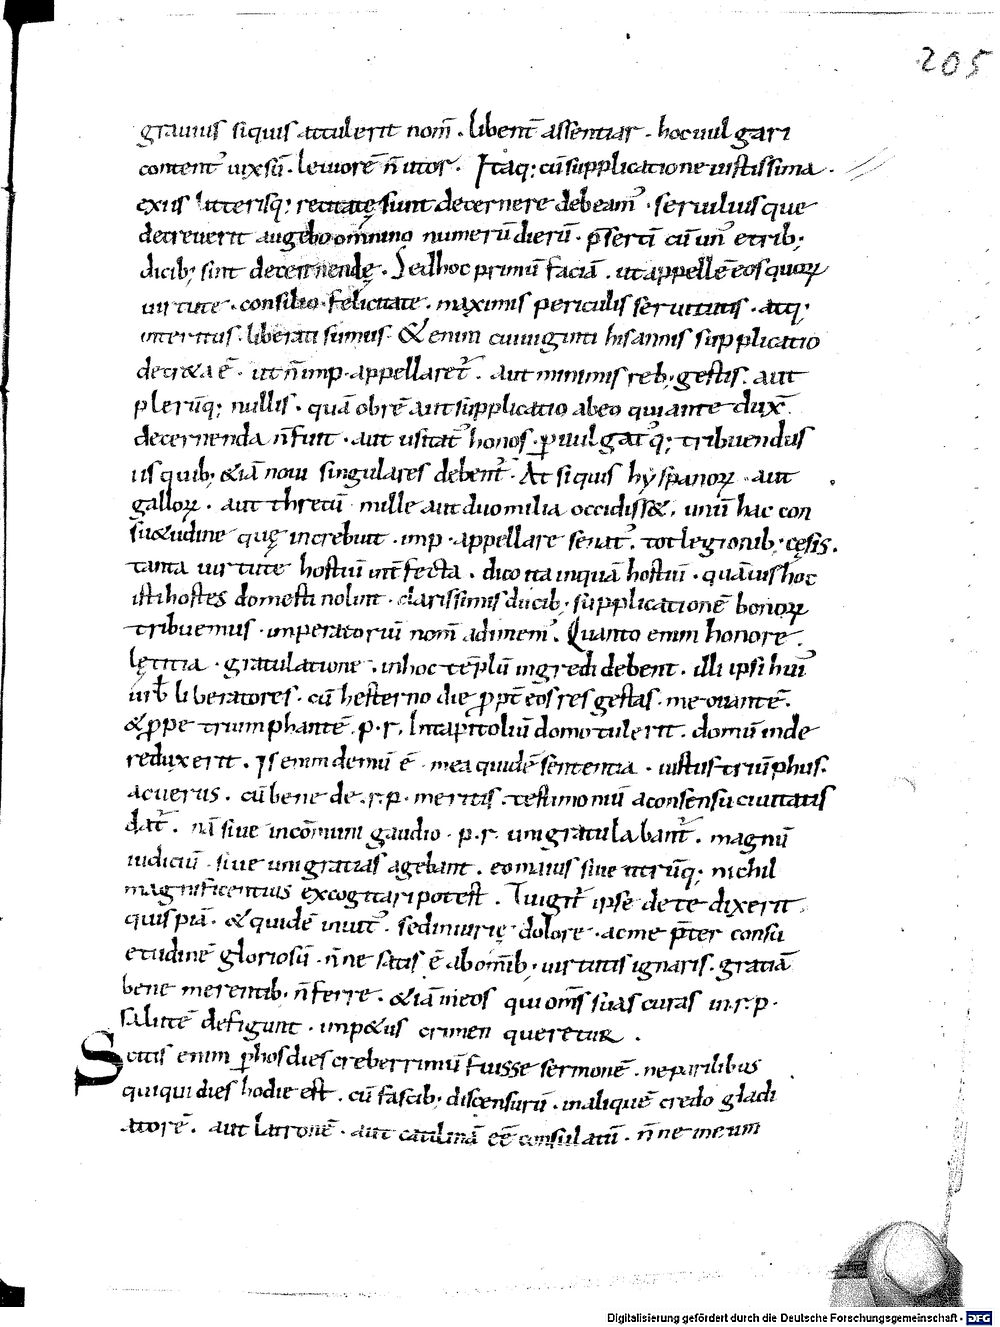 205
grauius siquis attulerit nom̄. libent̄ assentiar. hoc uulgari
content᾿ uixsū. leuiorē n̄ utor. Itaq; cū supplicatione iustissima.
ex iis litterisq; recitatę sunt decernere debeam᾿. seruiliusque
decreuerit augebo omnino numerū dierū. p̄sertī cū un᾿ et trib;
dicib; sint decernendę. Sed hoc primū faciā. ut appellē eos quoꝝ
uirtute. consilio. felicitate. maximis periculis seruitutis. atq;
interitus. liberati sumus. & enim cui uiginti his annis supplicatio
decr&a ē. ut n̄ imp. appellaret᾿. aut minimis reb; gestis. aut
plerūq; nullis. quā obrē aut supplicatio abeo qui ante dux̄
decernenda n̄ fuit. aut usitat᾿ honos. ꝑuulgat᾿q; tribuendus
iis quib; &iā noui singulares debent᾿. At siquis hyspanoꝝ aut
galloꝝ. aut threcū. mille aut duo milia occidiss&. unū hac con
su&udine quę increbuit. imp. appellare senat᾿. tot legionib; cęsis.
tanta uirtute hostiū int̄fecta. dico ita inquā hostiū. quāuis hoc
isti hostes domesti nolint. clarissimis ducib; supplicationē bonoꝝ
tribuemus. imperatoriū nom̄ adimem᾿. Quanto enim honore.
lętitia. gratulatione. in hoc tēplū ingredi debent. illi ipsi hui᾿
urb̄ liberatores. cū hesterno die ꝓpt̄ eos res gestas. me ouantē.
& ꝓpe triumphantē. p. r. In capitoliū domo tulerit. domū inde
reduxerit. Is enim demū ē mea quidē sententia. iustus triūphus.
ac uerus. cū bene de .r.p. meritis. testimoniū a consensu ciuitatis
dat᾿. nā siue in cōmuni gaudio. p. r. uni gratulabant᾿. magnū
iudiciū. siue uni gratias agebant. eo maius siue utrūq; nichil
magnificentius excogitari potest. Tu igit᾿ ipse de te dixerit
quispiā. & quidē inuit᾿. sed iniurię dolore. ac me p̄ter consu
etudinē gloriosū. n̄ne satis ē ab om̄ib; uirtutis ignaris. gratiā
bene merentib; n̄ ferre. &iā in eos qui om̄s suas curas in .r.p.
salutē defigunt. imp&us crimen queretur.
Scitis enim ꝑ hos dies creberrimū fuisse sermonē. ne parilibus
qui qui dies hodie est. cū fascib; discensurū. in aliquē credo gladi
atorē. aut latronē. aut catilinā eē consulatū. n̄ ne in eum
Digitalisierung gefördert durch die Deutsche Forschungsgemeinschaft - DFG